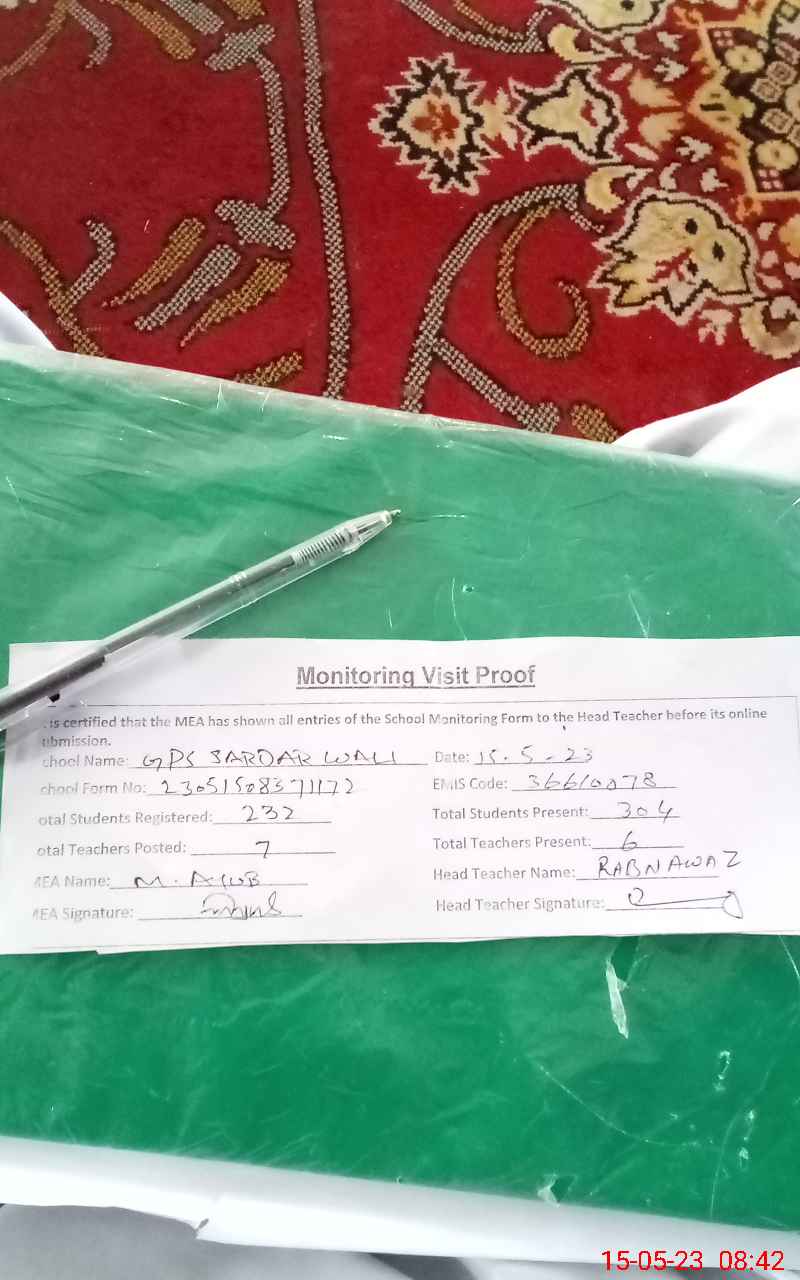 Monitoring Visit Proof
is certified that the MEA has shown all entries of the School Monitoring Form to the Head Teacher before its online
ubmission.
chool Name: GPS SARDAR WALI Date: 15.5-23
chool Form No: EMIS Code: 36610078
otal Students Registered: 232 Total Students Present: 304
otal Teachers Posted: 7 Total Teachers Present: 6
MEA Name: M. AYUB Head Teacher Name: RABNAWAZ
MEA Signature: Head Teacher Signature:
15-05-23 08:42